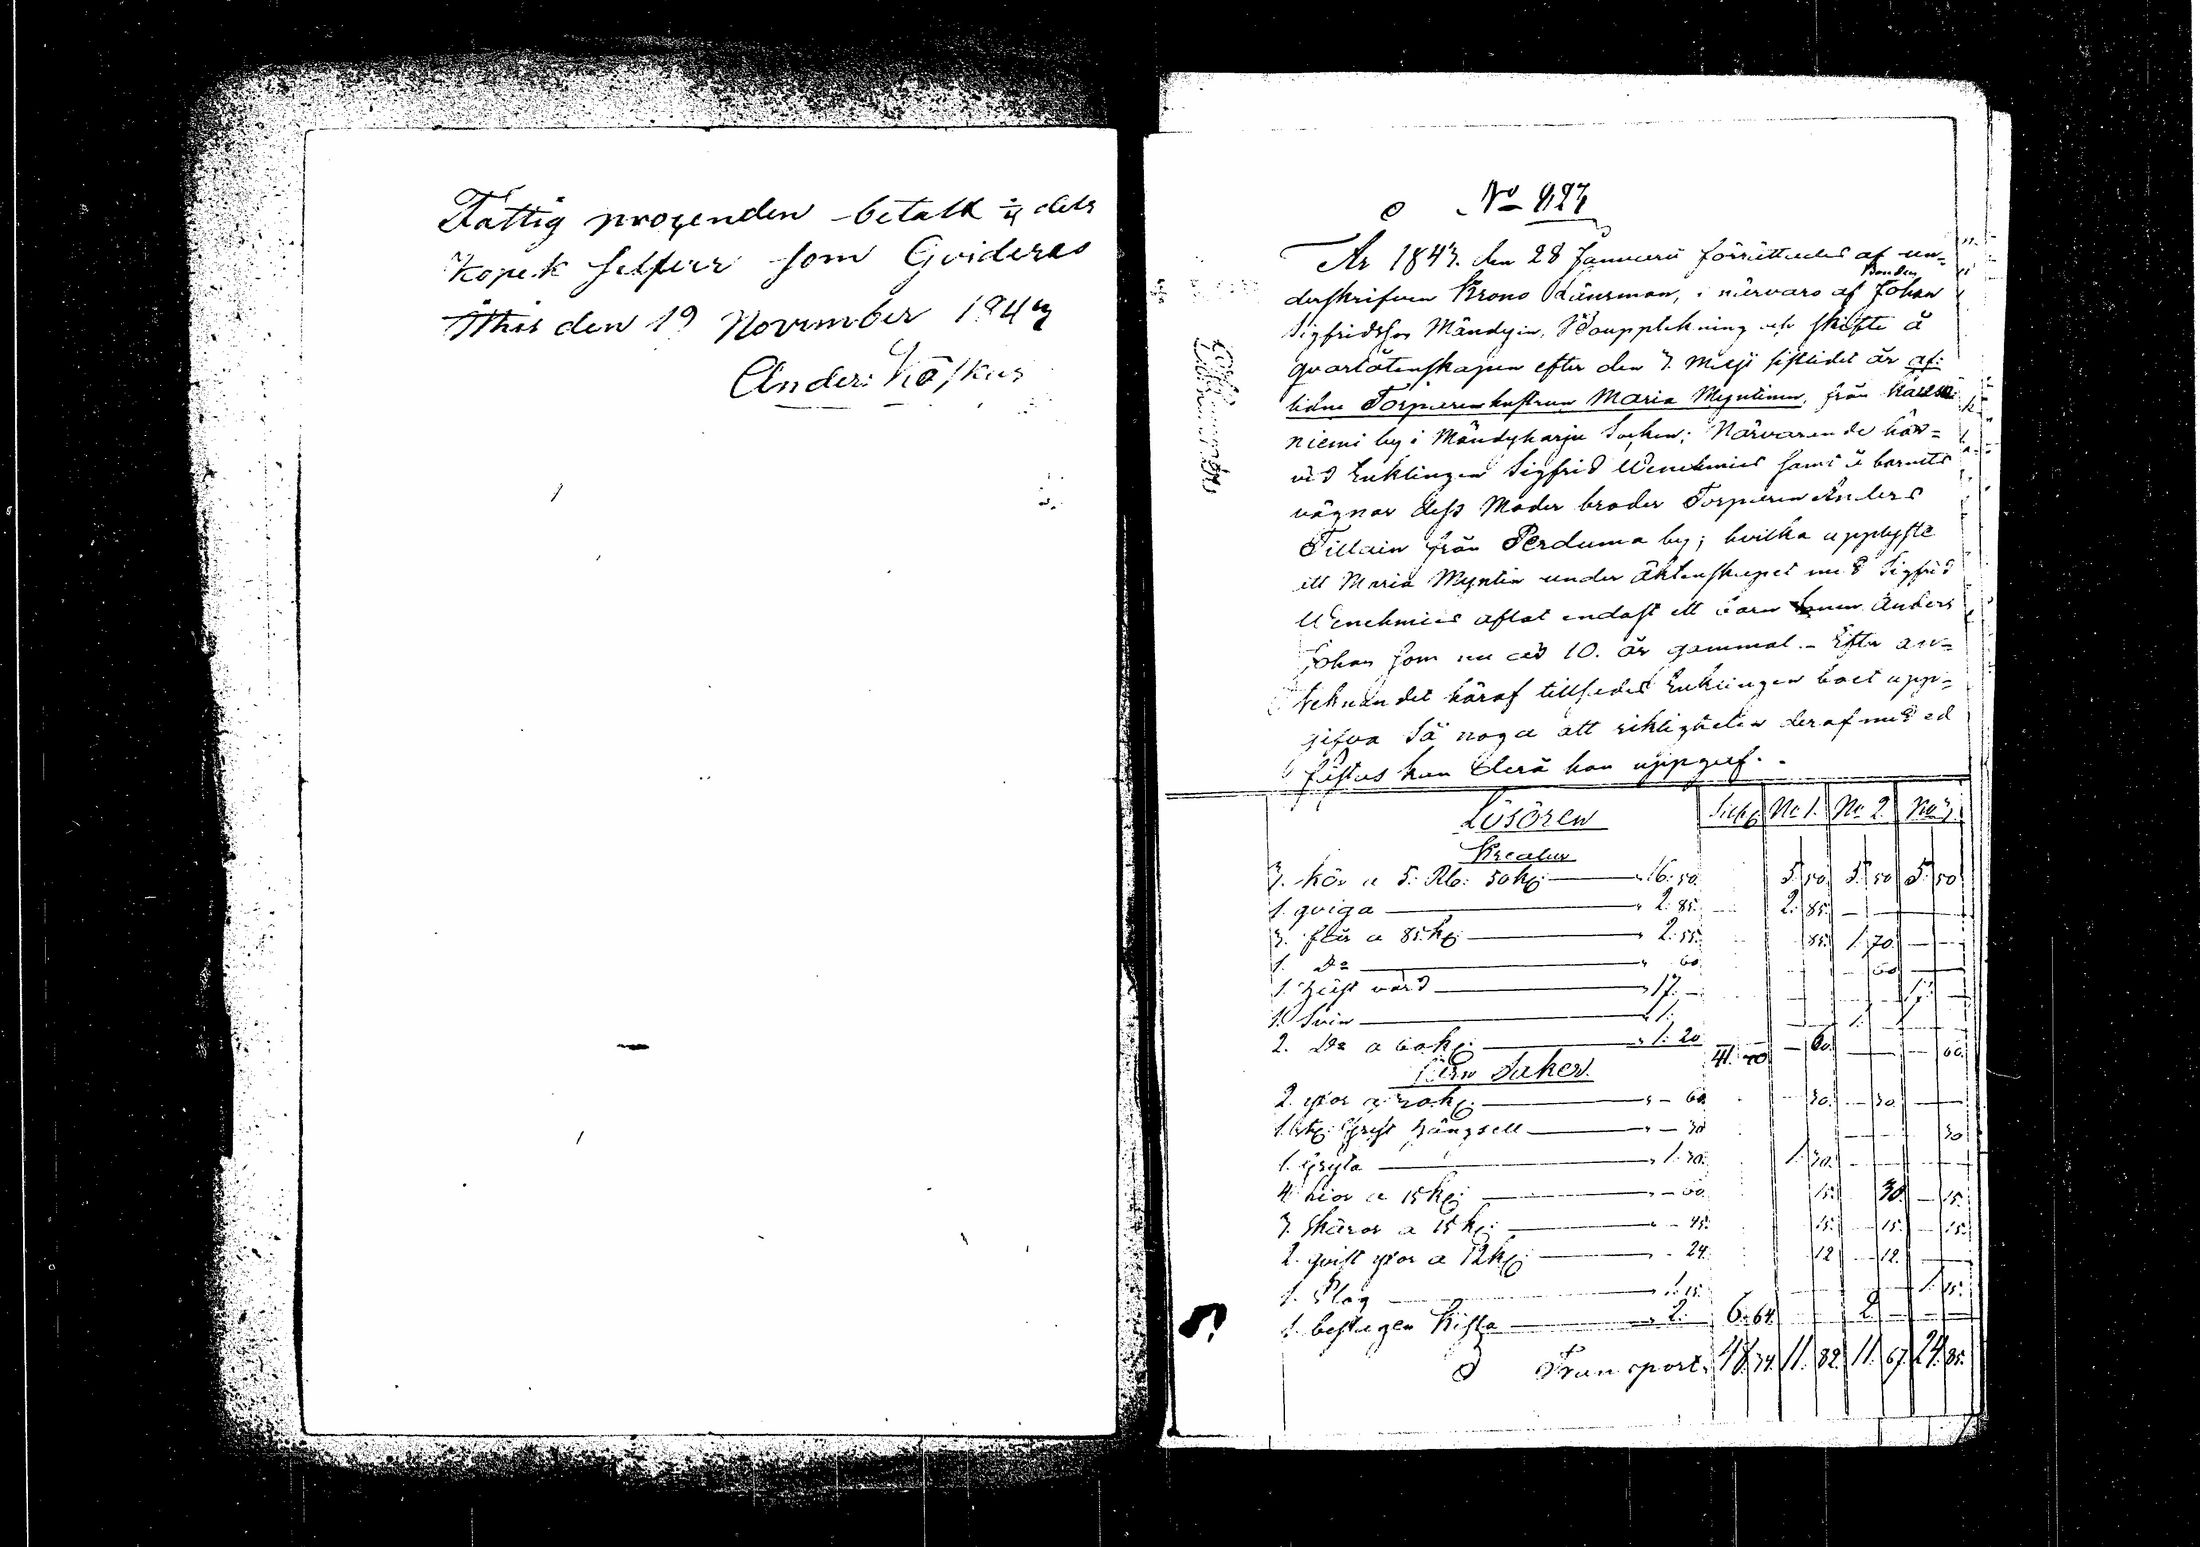 Fattig procenden betalt ¼ dels
Kopek silfver som Qvideras
den 19 November 1843
Anders Köskus
No 927
År 1843. den 28 Januarii förrättades af un=
derskrifven Krono Länsman, i närvaro af Bonden Johan
Sigfridsson Mändyin, Bouppteckning och skifte å
qvarlåtenskapen efter den 7. sistlidet år af=
lidne Torparenhustrun Maria Myntinen, från
niemi by i Mändyharju Socken; Närvarende här=
vid Enklingen Sigfrid Wenehmies samt å barnets
vägnar dess Moder broder Torparen Anders
Tillain från Perduma by; hvilka upplyste
att Maria Myntin under äktenskapet med Sigfrid
Wenehmies aflat endast ett barn Sonen Anders
Johan som nu är 10. år gammal. - Efter an=
tecknandet häraf tillsades Enklingen boet upp=
gifva så noga att riktigheten deraf med ed
fästas kan derå han uppgaf. -
Lösören Silfr No 1. No 2. No 3.
Kreatur
3. kor a 5. Rb: 50 kp: 16: 50. 5. 50. 5. 50 5. 50
1. qviga 2. 85. 2. 85. — —
3. får a 85. kp: 2. 55. 85. 1. 70. —
1. Do 60. — 60 —
1. Häst värd 17. — — — 17. —
1. Svin 1. — 1.
2. Do a 60 kp: 1. 20 41. 70. — 60. — — 60.
Jern Saker.
2. yxor a 30 kp: — 60. 30. — 30. —
Hängsell — 30 — 30
1. Gryta 1. 30. 1. 30. — —
4 liar a 15 kp: — 60. 15. 30. — 15.
3. Skäror a 15 kp: — 45. 15. — 15. — 15.
2. qvist yxor a 12 kp: — 24. 12 — 12. —
1. Plog 1. 15. — 1. 15.
1 beslagen Kista 2. 6. 64. 2 —
Transport. 48. 34. 11. 82. 11. 67. 24. 85.